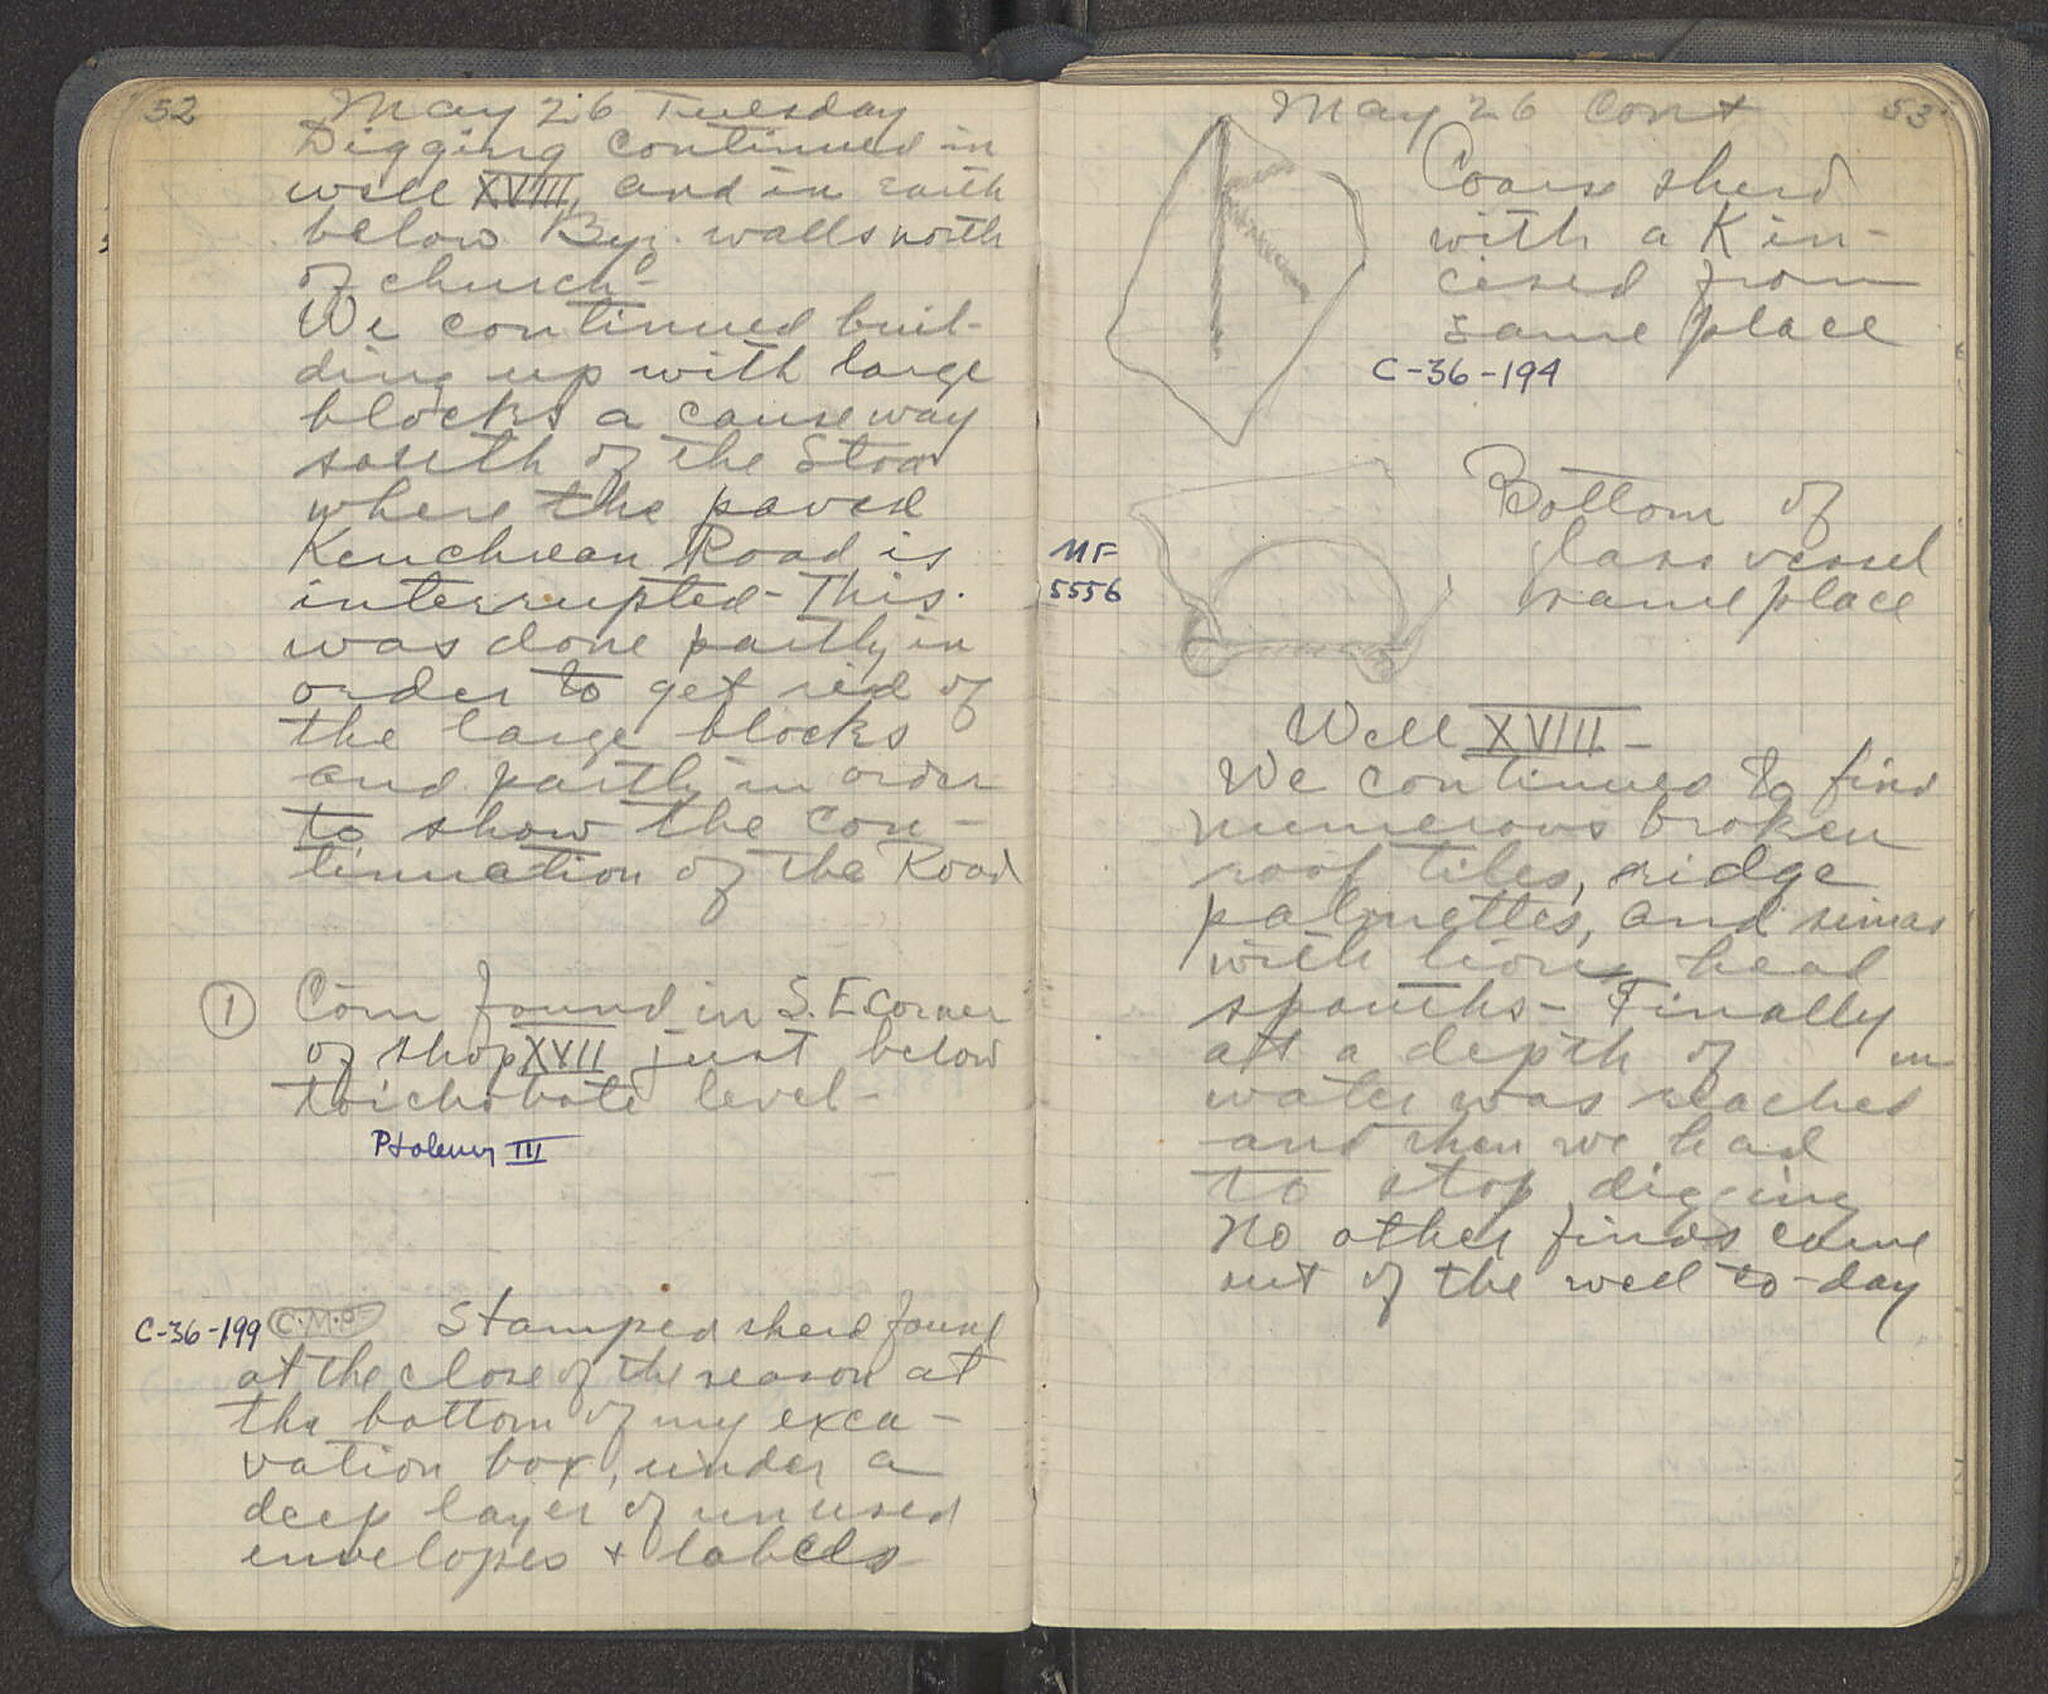 52
May 26 Tuesday
Digging continued in
well XVIII, and in earth
below Byz. walls north
of church-
We continued buil-
ding up with large
blocks a causeway
south of the Stoa
where the paved
Kenchrean Road is
interrupted - This
was done partly in
order to get rid of
the large blocks
and partly in order
to show the con-
tinuation of the Road
1 Coin found in S.E corner
of shop XVII just below
toichobate level-
Ptolemy III
C-36-199 C.M.P Stamped sherd found
at the close of the season at
the bottom of my exca-
vation box, under a
deep layer of unused
envelopes + labels
May 26 Cont
53
Coarse sherd
with a K in-
cised from
same place
C-36-194
Bottom of
glass vessel
same place
MF
5556
Well XVIII-
We continued to find
numerous broken
roof tiles, ridge
palmettes, and simas
with lions head
spouths - Finally
at a depth of m
water was reached
and then we had
to stop digging
No other finds came
out of the well to-day